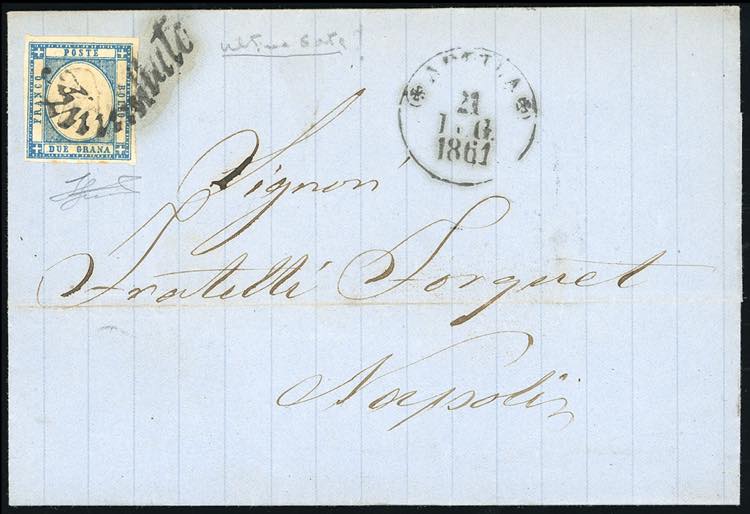 POSTE
FRANCO
BOLLO
DUE GRANA
Annullato
21
LUG
1861
Signori
Fratelli Forquet
Napoli